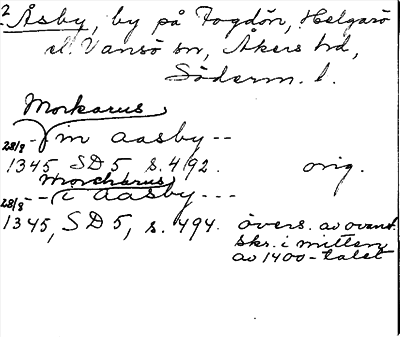 2 Åsby, by på Fogdön, Helgarö
el. Vansö sn, Åkers hd,
Söderm. l.
Morkarus
28/8 - - m aasby - -
1345 SD 5 s. 492. orig.
Morchærus
28/8 - - i aasby - - -
1345, SD 5, s. 494. övers. av ovanst.
skr. i mitten
av 1400-talet